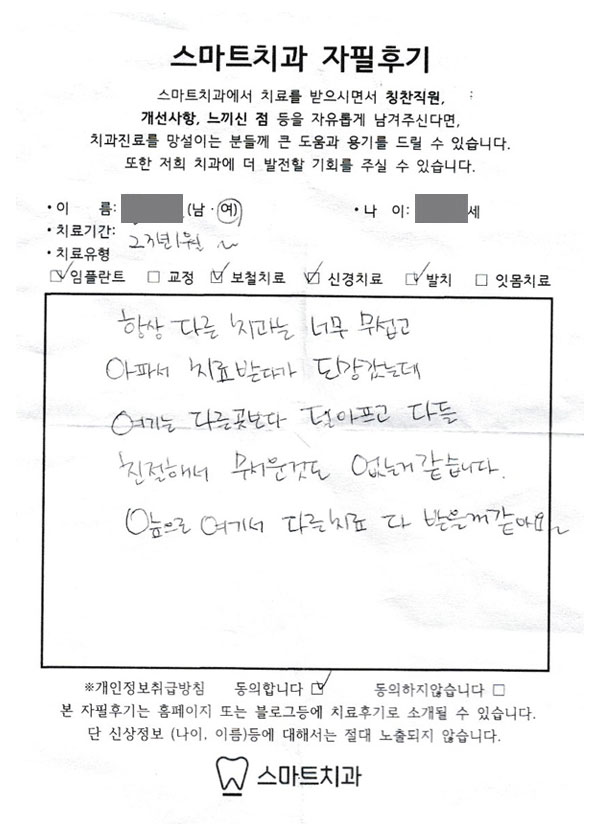 스마트치과 자필후기
스마트치과에서 치료를 받으시면서 칭찬직원,
개선사항, 느끼신 점 등을 자유롭게 남겨주신다면,
치과진료를 망설이는 분들께 큰 도움과 용기를 드릴 수 있습니다.
또한 저희 치과에 더 발전할 기회를 주실 수 있습니다.
• 이 름: (남 · 여) • 나 이: 세
• 치료기간: 23년1월 ~
• 치료유형
임플란트 교정 보철치료 신경치료 발치 잇몸치료
항상 다른 치과는 너무 무섭고
아파서 치료받다가 도망갔는데
여기는 다른곳보다 덜아프고 다들
친절해서 무서운것도 없는거 같습니다.
앞으로 여기서 다른치료 다 받을꺼같아요~
※개인정보취급방침 동의합니다 동의하지않습니다
본 자필후기는 홈페이지 또는 블로그등에 치료후기로 소개될 수 있습니다.
단 신상정보 (나이, 이름)등에 대해서는 절대 노출되지 않습니다.
스마트치과